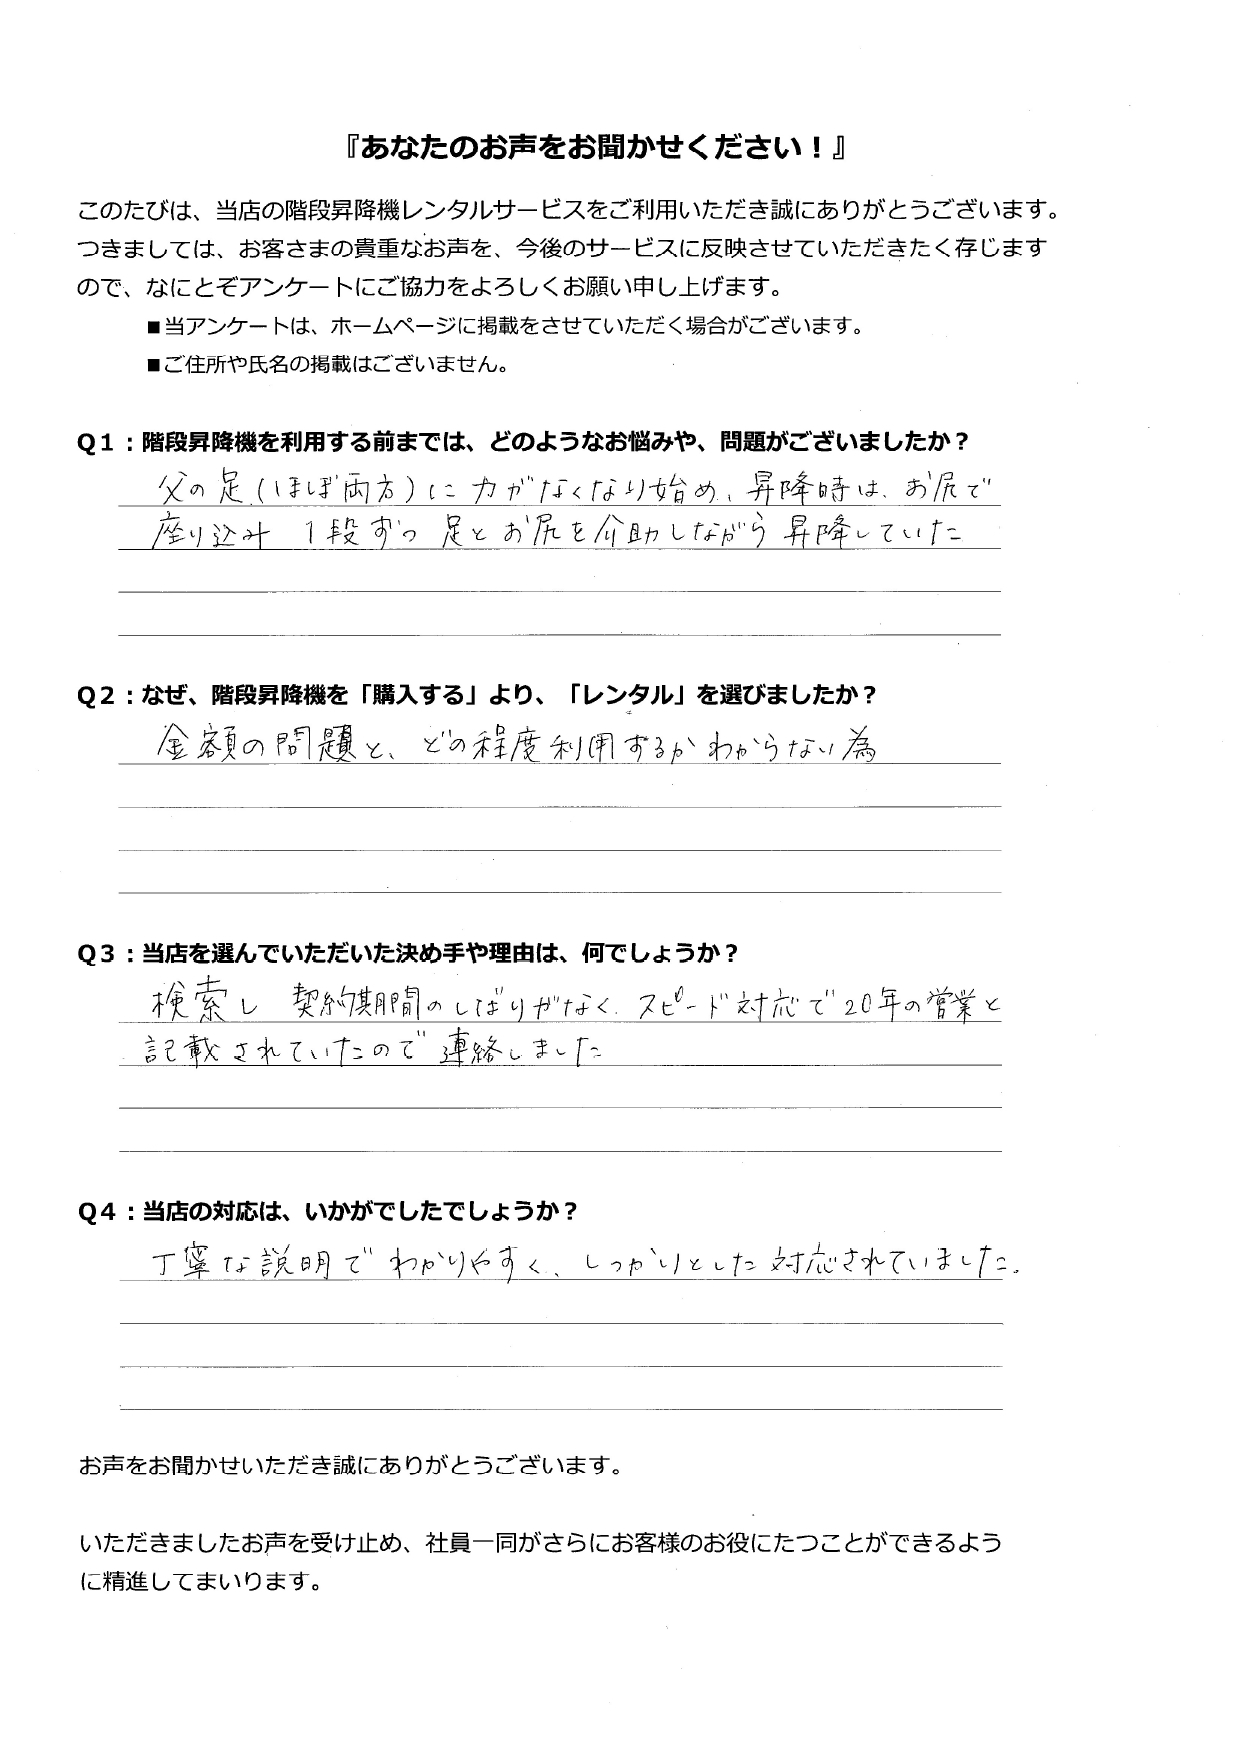 『あなたのお声をお聞かせください！』
このたびは、当店の階段昇降機レンタルサービスをご利用いただき誠にありがとうございます。
つきましては、お客さまの貴重なお声を、今後のサービスに反映させていただきたく存じます
ので、なにとぞアンケートにご協力をよろしくお願い申し上げます。
■当アンケートは、ホームページに掲載をさせていただく場合がございます。
■ご住所や氏名の掲載はございません。
Q１：階段昇降機を利用する前までは、どのようなお悩みや、問題がございましたか？
父の足(ほぼ両方)に力がなくなり始め、昇降時は、お尻で
座り込み 1段ずつ 足とお尻を介助しながら昇降していた
Q２：なぜ、階段昇降機を「購入する」より、「レンタル」を選びましたか？
金額の問題と、どの程度利用するかわからない為
Q３：当店を選んでいただいた決め手や理由は、何でしょうか？
検索し 契約期間のしばりがなく、スピード対応で20年の営業と
記載されていたので連絡しました
Q４：当店の対応は、いかがでしたでしょうか？
丁寧な説明でわかりやすく、しっかりとした対応されていました。
お声をお聞かせいただき誠にありがとうございます。
いただきましたお声を受け止め、社員一同がさらにお客様のお役にたつことができるよう
に精進してまいります。